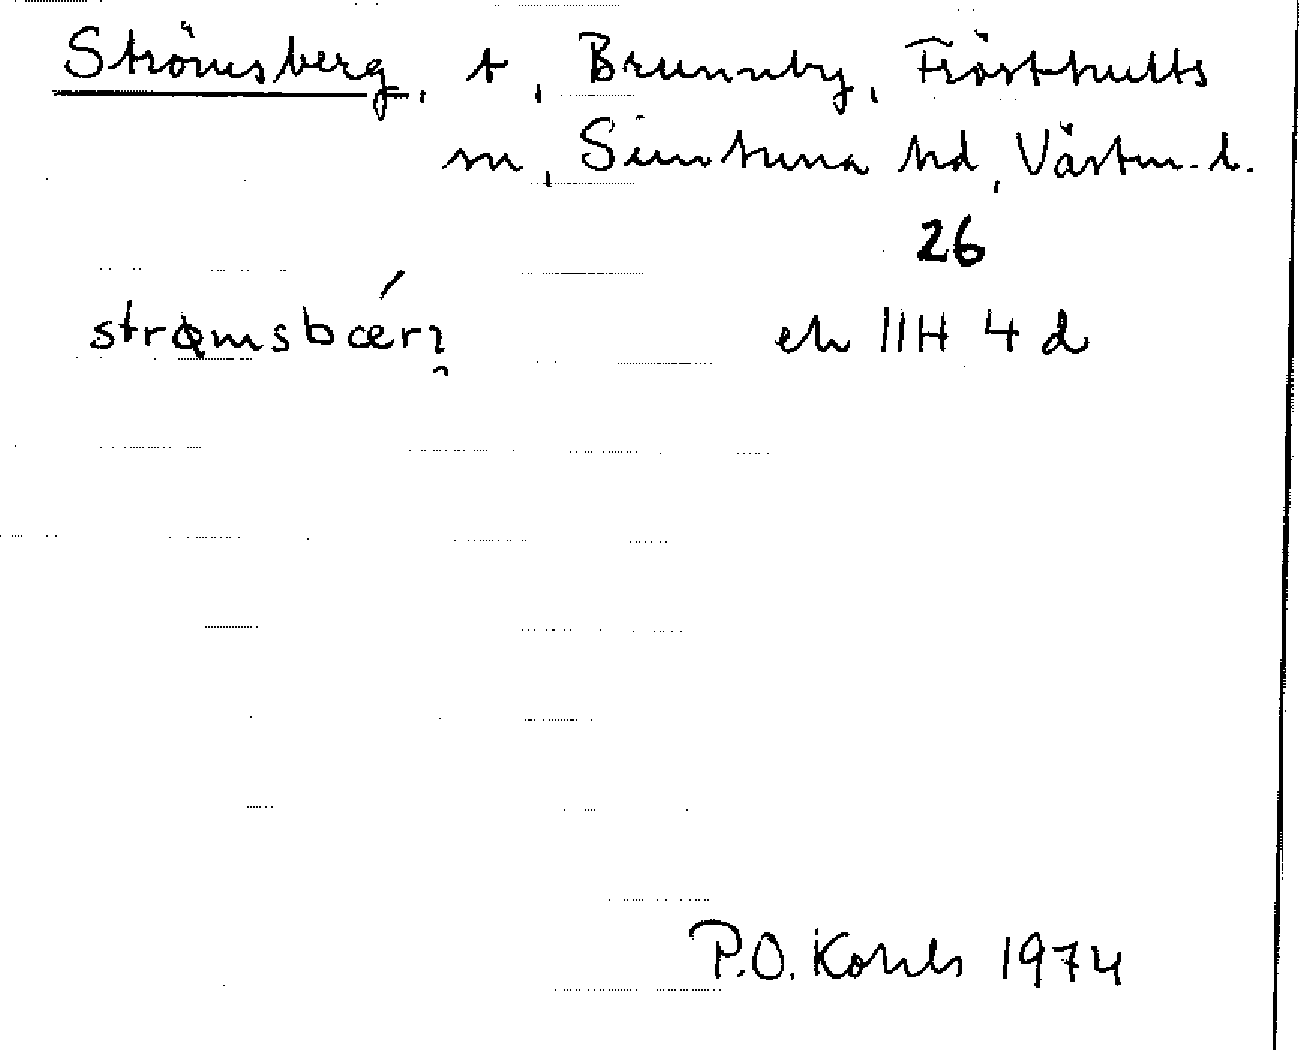 Strömsberg, t, Brunnby, Frösthults
sn, Simtuna hd, Västm. l.
26
strømsbæ´rɿ̯ ek 11H 4 d
P.O. Korhls 1974